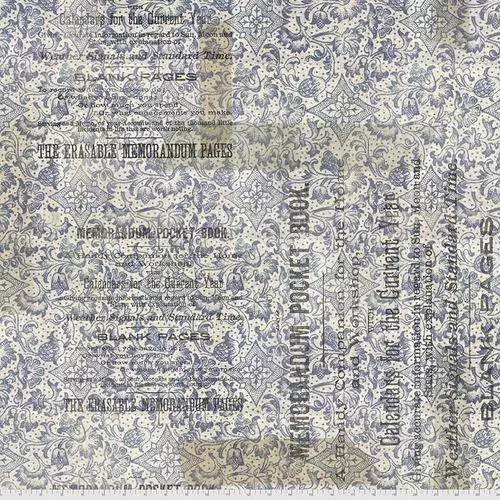 WITH
Calendars for the Current Year
Giving accurate information in regard to Sun, Moon and
Stars, with explanation of
Weather Signals and Standard Time.
BLANK PAGES
To record what you have to do;
Or what you have done;
Or how much you spend;
Or what engagements you make.
Serving as a Memo. of your Accounts and of the thousand little
incidents in life that are worth noting.
THE ERASABLE MEMORANDUM PAGES
MEMORANDUM POCKET BOOK.
A Handy Companion for the Home
and Workshop,
Calendars for the Current Year
Giving accurate information in regard to Sun, Moon and
Stars, with explanation of
Weather Signals and Standard Time.
BLANK PAGES
THE ERASABLE MEMORANDUM PAGES
MEMORANDUM POCKET BOOK.
MEMORANDUM POCKET BOOK.
A Handy Companion for the Home
and Workshop,
WITH
Calendars for the Current Year
Giving accurate information in regard to Sun, Moon and
Stars, with explanation of
Weather Signals and Standard Time.
BLANK PAGES